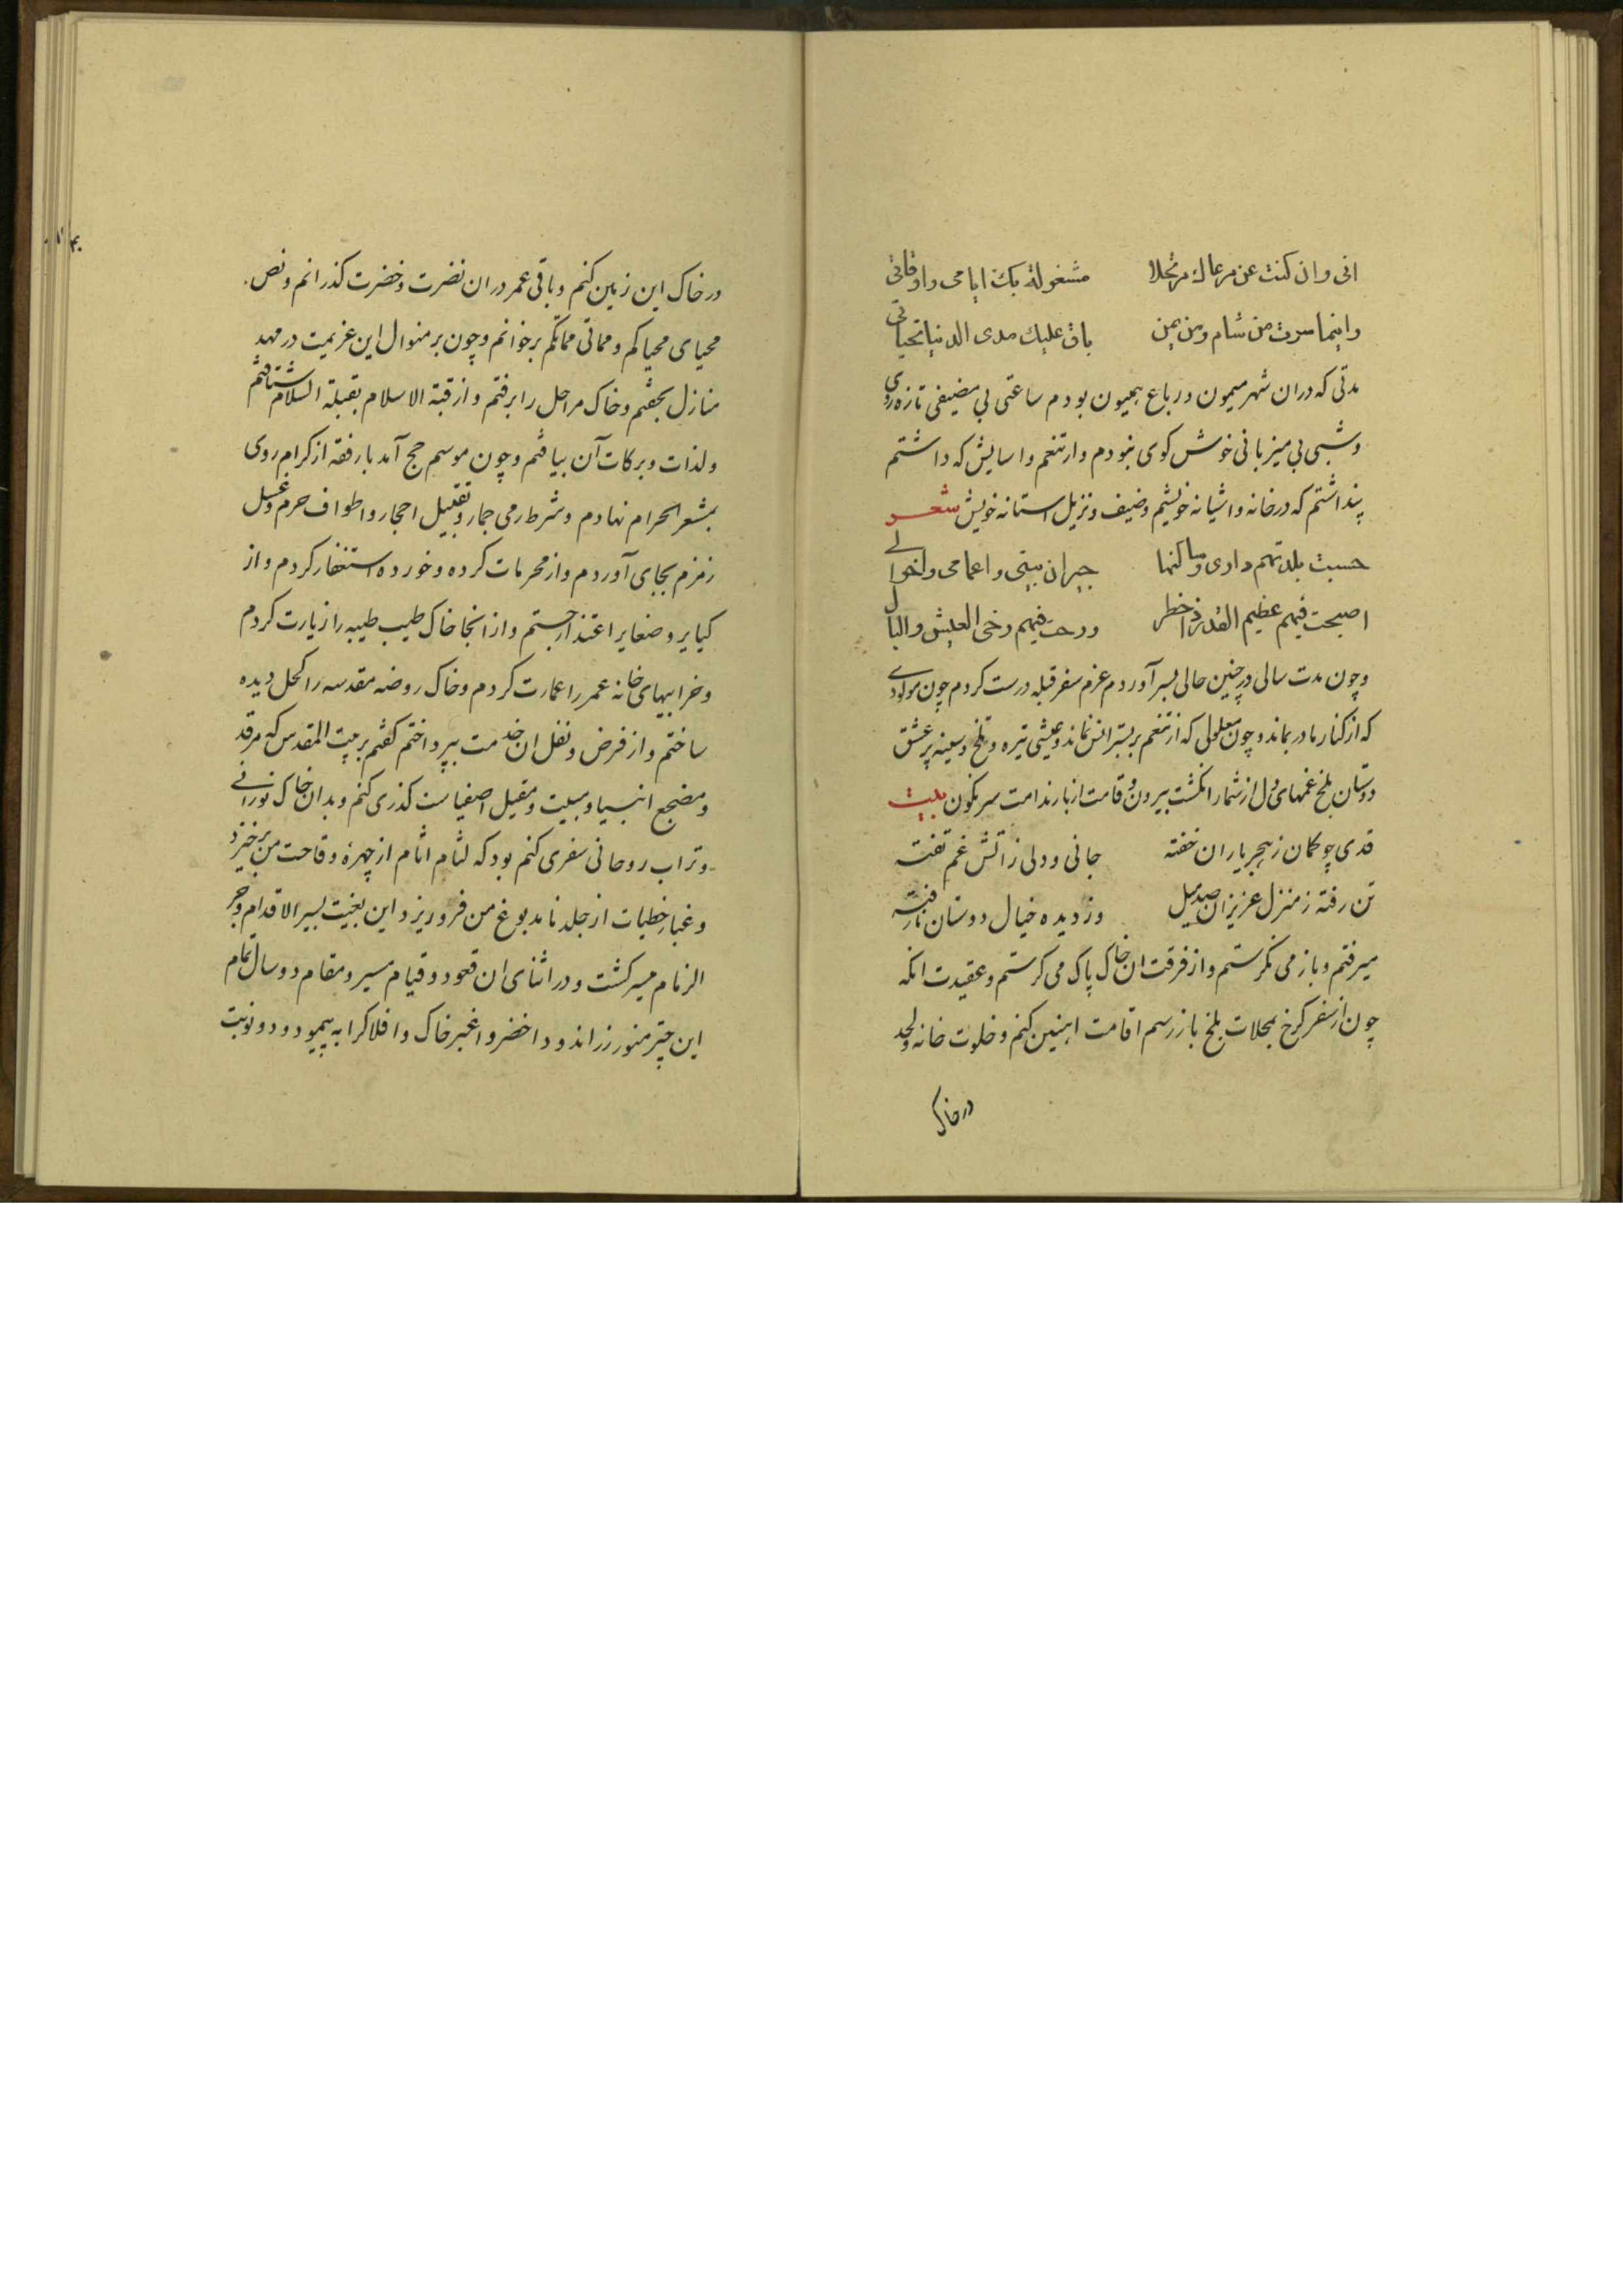 انی وان کنت عن مرعاك مرتحلا مشغولة بك ایامی واوقاتی
واینما سرت من شام ومن یمن باق علیك مدی الدنیا تحیاتی
مدتی که دران شهر میمون و رباع همیون بودم ساعتی بی مضیفی تازه روی
و شبی بی میزبانی خوش کوی نبودم و از تنعم و اسایش که داشتم
پنداشتم که در خانه و اشیانه خویشم و ضیف و نزیل استانه خویش شعر
حسبت بلدتهم داری وساکنها جیران بیتی واعمامی واخوالی
اصبحت فیهم عظیم القدر ذا خطر ورحت فیهم رخی العیش والبال
و چون مدت سالی در چنین حالی بسر آوردم عزم سفر قبله درست کردم چون مولودی
که از کنار مادر بماند و چون معلولی که از تنعم بر بستر انس نماند و عیشی تیره و تلخ و سینه پر عشق
دوستان بلخ غمهای دل از شمار انکشت بیرون و قامت از بار ندامت سرنکون بیت
قدی چو کمان ز هجر یاران خفته جانی و دلی ز اتش غم تفته
تن رفته ز منزل عزیزان صد میل وز دیده خیال دوستان نارفته
میرفتم و باز می نکرستم و از فرقت ان خاک پاک می کرستم و عقیدت انکه
چون از سفر کرخ بمحلات بلخ باز رسم اقامت اینجا کنم و خلوت خانه لحد
در خاک
در خاک این زمین کنم و باقی عمر دران نضرت و خضرت کذرانم و نص
محیای محیاکم و مماتی مماتکم برخوانم و چون بر منوال این عزیمت در مهد
منازل بخفتم و خاک مراحل را برفتم و از قبة الاسلام بقبلة السلام شتافتم
و لذات و برکات آن بیافتم و چون موسم حج آمد با رفقه از کرام روی
بمشعر الحرام نهادم و شرط رمی جمار و تقبیل احجار و اطواف حرم و غسل
زمزم بجای آوردم و از محرمات کرده و خورده استغفار کردم و از
کبایر و صغایر اعتذار جستم و از انجا خاک طیب طیبه را زیارت کردم
و خرابیهای خانه عمر را عمارت کردم و خاک روضه مقدسه را کحل دیده
ساختم و از فرض و نفل ان خدمت بپرداختم کفتم بر بیت المقدس که مرقد
و مضجع انبیا و مبیت و مقیل اصفیاست کذری کنم و بدان خاک نورانی
و تراب روحانی سفری کنم بود که لثام اثام از چهره وقاحت من برخیزد
و غبار خطیات از جلد نامدبوغ من فرو ریزد و این بغیت بسیر الاقدام و جر
الزمام میسر کشت و در اثنای ان قعود و قیام مسیر و مقام دو سال تمام
این چتر منور زراندود اخضر و اغبر خاک و افلاک را به پیمود و دو نوبت